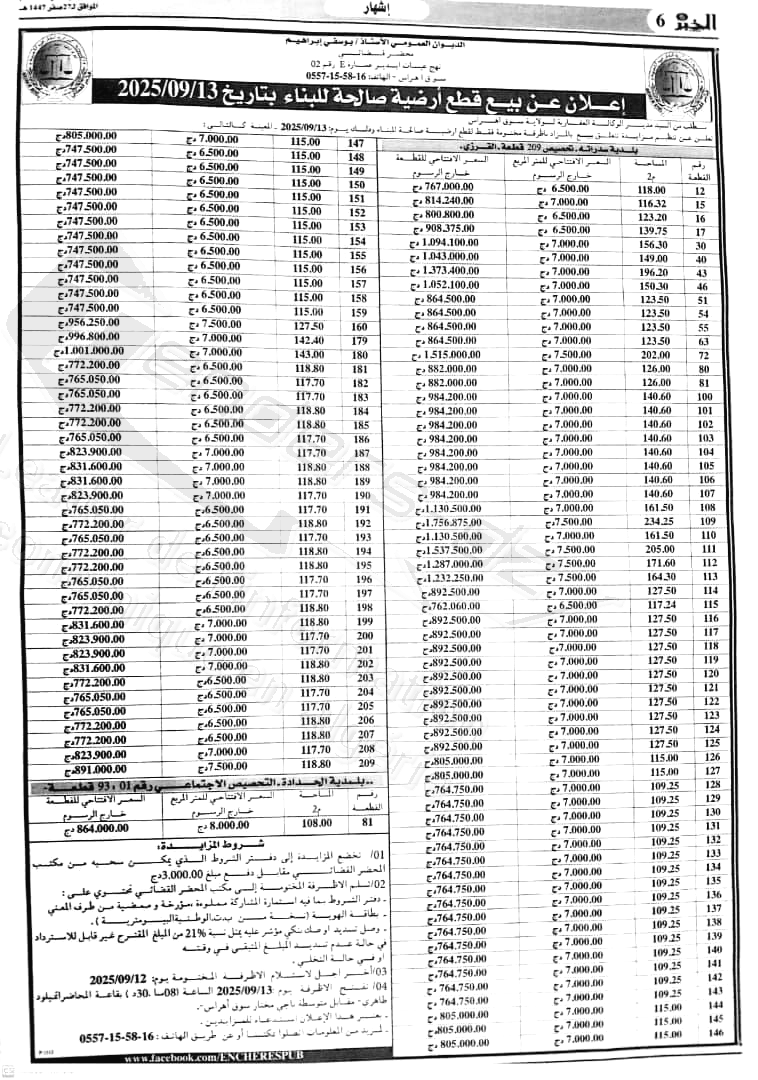 الخبر 6
إشهار
الموافق لـ27 صفر 1447 هـ
الديوان العمومي الأستاذ/ يوسفي إبراهيم
محضر قضائي
نهج عباسة ايدير عمارة E رقم 02
سوق أهراس - الهاتف: 16-58-15-0557
إعلان عن بيع قطع أرضية صالحة للبناء بتاريخ 2025/09/13
بطلب من السيد مدير الوكالة العقارية لولاية سوق أهراس
نعلن عن تنظيم مزايدة تتعلق ببيع بالمزاد بأظرفة مختومة فقط لقطع أرضية صالحة للبناء وذلك يوم: 2025/09/13، المعينة كالتالي:
بلدية سدراتة، تخصيص 209 قطعة، القرزي.
رقم القطعة المساحة م2 السعر الافتتاحي للمتر المربع خارج الرسوم السعر الافتتاحي للقطعة خارج الرسوم
12 118.00 6.500.00 دج 767.000.00 دج
15 116.32 7.000.00 دج 814.240.00 دج
16 123.20 6.500.00 دج 800.800.00 دج
17 139.75 6.500.00 دج 908.375.00 دج
30 156.30 7.000.00 دج 1.094.100.00 دج
40 149.00 7.000.00 دج 1.043.000.00 دج
43 196.20 7.000.00 دج 1.373.400.00 دج
46 150.30 7.000.00 دج 1.052.100.00 دج
51 123.50 7.000.00 دج 864.500.00 دج
54 123.50 7.000.00 دج 864.500.00 دج
55 123.50 7.000.00 دج 864.500.00 دج
63 123.50 7.000.00 دج 864.500.00 دج
72 202.00 7.500.00 دج 1.515.000.00 دج
80 126.00 7.000.00 دج 882.000.00 دج
81 126.00 7.000.00 دج 882.000.00 دج
100 140.60 7.000.00 دج 984.200.00 دج
101 140.60 7.000.00 دج 984.200.00 دج
102 140.60 7.000.00 دج 984.200.00 دج
103 140.60 7.000.00 دج 984.200.00 دج
104 140.60 7.000.00 دج 984.200.00 دج
105 140.60 7.000.00 دج 984.200.00 دج
106 140.60 7.000.00 دج 984.200.00 دج
107 140.60 7.000.00 دج 984.200.00 دج
108 161.50 7.000.00 دج 1.130.500.00 دج
109 234.25 7.500.00 دج 1.756.875.00 دج
110 161.50 7.000.00 دج 1.130.500.00 دج
111 205.00 7.500.00 دج 1.537.500.00 دج
112 171.60 7.500.00 دج 1.287.000.00 دج
113 164.30 7.500.00 دج 1.232.250.00 دج
114 127.50 7.000.00 دج 892.500.00 دج
115 117.24 6.500.00 دج 762.060.00 دج
116 127.50 7.000.00 دج 892.500.00 دج
117 127.50 7.000.00 دج 892.500.00 دج
118 127.50 7.000.00 دج 892.500.00 دج
119 127.50 7.000.00 دج 892.500.00 دج
120 127.50 7.000.00 دج 892.500.00 دج
121 127.50 7.000.00 دج 892.500.00 دج
122 127.50 7.000.00 دج 892.500.00 دج
123 127.50 7.000.00 دج 892.500.00 دج
124 127.50 7.000.00 دج 892.500.00 دج
125 127.50 7.000.00 دج 892.500.00 دج
126 115.00 7.000.00 دج 805.000.00 دج
127 115.00 7.000.00 دج 805.000.00 دج
128 109.25 7.000.00 دج 764.750.00 دج
129 109.25 7.000.00 دج 764.750.00 دج
130 109.25 7.000.00 دج 764.750.00 دج
131 109.25 7.000.00 دج 764.750.00 دج
132 109.25 7.000.00 دج 764.750.00 دج
133 109.25 7.000.00 دج 764.750.00 دج
134 109.25 7.000.00 دج 764.750.00 دج
135 109.25 7.000.00 دج 764.750.00 دج
136 109.25 7.000.00 دج 764.750.00 دج
137 109.25 7.000.00 دج 764.750.00 دج
138 109.25 7.000.00 دج 764.750.00 دج
139 109.25 7.000.00 دج 764.750.00 دج
140 109.25 7.000.00 دج 764.750.00 دج
141 109.25 7.000.00 دج 764.750.00 دج
142 109.25 7.000.00 دج 764.750.00 دج
143 109.25 7.000.00 دج 764.750.00 دج
144 115.00 7.000.00 دج 805.000.00 دج
145 115.00 7.000.00 دج 805.000.00 دج
146 115.00 7.000.00 دج 805.000.00 دج
147 115.00 7.000.00 دج 805.000.00 دج
148 115.00 6.500.00 دج 747.500.00 دج
149 115.00 6.500.00 دج 747.500.00 دج
150 115.00 6.500.00 دج 747.500.00 دج
151 115.00 6.500.00 دج 747.500.00 دج
152 115.00 6.500.00 دج 747.500.00 دج
153 115.00 6.500.00 دج 747.500.00 دج
154 115.00 6.500.00 دج 747.500.00 دج
155 115.00 6.500.00 دج 747.500.00 دج
156 115.00 6.500.00 دج 747.500.00 دج
157 115.00 6.500.00 دج 747.500.00 دج
158 115.00 6.500.00 دج 747.500.00 دج
159 115.00 6.500.00 دج 747.500.00 دج
160 127.50 7.500.00 دج 956.250.00 دج
179 142.40 7.000.00 دج 996.800.00 دج
180 143.00 7.000.00 دج 1.001.000.00 دج
181 118.80 6.500.00 دج 772.200.00 دج
182 117.70 6.500.00 دج 765.050.00 دج
183 117.70 6.500.00 دج 765.050.00 دج
184 118.80 6.500.00 دج 772.200.00 دج
185 118.80 6.500.00 دج 772.200.00 دج
186 117.70 6.500.00 دج 765.050.00 دج
187 117.70 7.000.00 دج 823.900.00 دج
188 118.80 7.000.00 دج 831.600.00 دج
189 118.80 7.000.00 دج 831.600.00 دج
190 117.70 7.000.00 دج 823.900.00 دج
191 117.70 6.500.00 دج 765.050.00 دج
192 118.80 6.500.00 دج 772.200.00 دج
193 117.70 6.500.00 دج 765.050.00 دج
194 118.80 6.500.00 دج 772.200.00 دج
195 118.80 6.500.00 دج 772.200.00 دج
196 117.70 6.500.00 دج 765.050.00 دج
197 117.70 6.500.00 دج 765.050.00 دج
198 118.80 6.500.00 دج 772.200.00 دج
199 118.80 7.000.00 دج 831.600.00 دج
200 117.70 7.000.00 دج 823.900.00 دج
201 117.70 7.000.00 دج 823.900.00 دج
202 118.80 7.000.00 دج 831.600.00 دج
203 118.80 6.500.00 دج 772.200.00 دج
204 117.70 6.500.00 دج 765.050.00 دج
205 117.70 6.500.00 دج 765.050.00 دج
206 118.80 6.500.00 دج 772.200.00 دج
207 118.80 6.500.00 دج 772.200.00 دج
208 117.70 7.000.00 دج 823.900.00 دج
209 118.80 7.500.00 دج 891.000.00 دج
..بلدية الحدادة، التخصيص الاجتماعي رقم 01 ، 93 قطعة-
رقم القطعة المساحة م2 السعر الافتتاحي للمتر المربع خارج الرسوم السعر الافتتاحي للقطعة خارج الرسوم
81 108.00 8.000.00 دج 864.000.00 دج
شروط المزايدة:
01/ تخضع المزايدة إلى دفتر الشروط الذي يمكن سحبه من مكتب
المحضر القضائي مقابل دفع مبلغ 3.000.00دج
02/تسلم الاظرفة المختومة إلى مكتب المحضر القضائي تحتوي على:
- دفتر الشروط بما فيه استمارة المشاركة مملوءة مؤرخة وممضية من طرف المعني
- بطاقة الهوية (نسخة من ب.ت.الوطنية البيومترية).
- وصل تسديد او صك بنكي مؤشر عليه يمثل نسبة 21% من المبلغ المقترح غير قابل للاسترداد
في حالة عدم تسديد المبلغ المتبقي في وقته
او في حالة التخلي.
03/أخر اجل لاستلام الاظرفة المختومة يوم: 2025/09/12
04/ تفتح الاظرفة يوم: 2025/09/13 الساعة (08سا 30د) بقاعة المحاضر اقبلود
طاهري- مقابل متوسطة باجي مختار سوق أهراس-.
- يعتبر هذا الإعلان استدعاء للمزايدين.
- لمزيد من المعلومات اتصلوا بمكتبنا أو عن طريق الهاتف: 16-58-15-0557
www.facebook.com/ENCHERESPUB